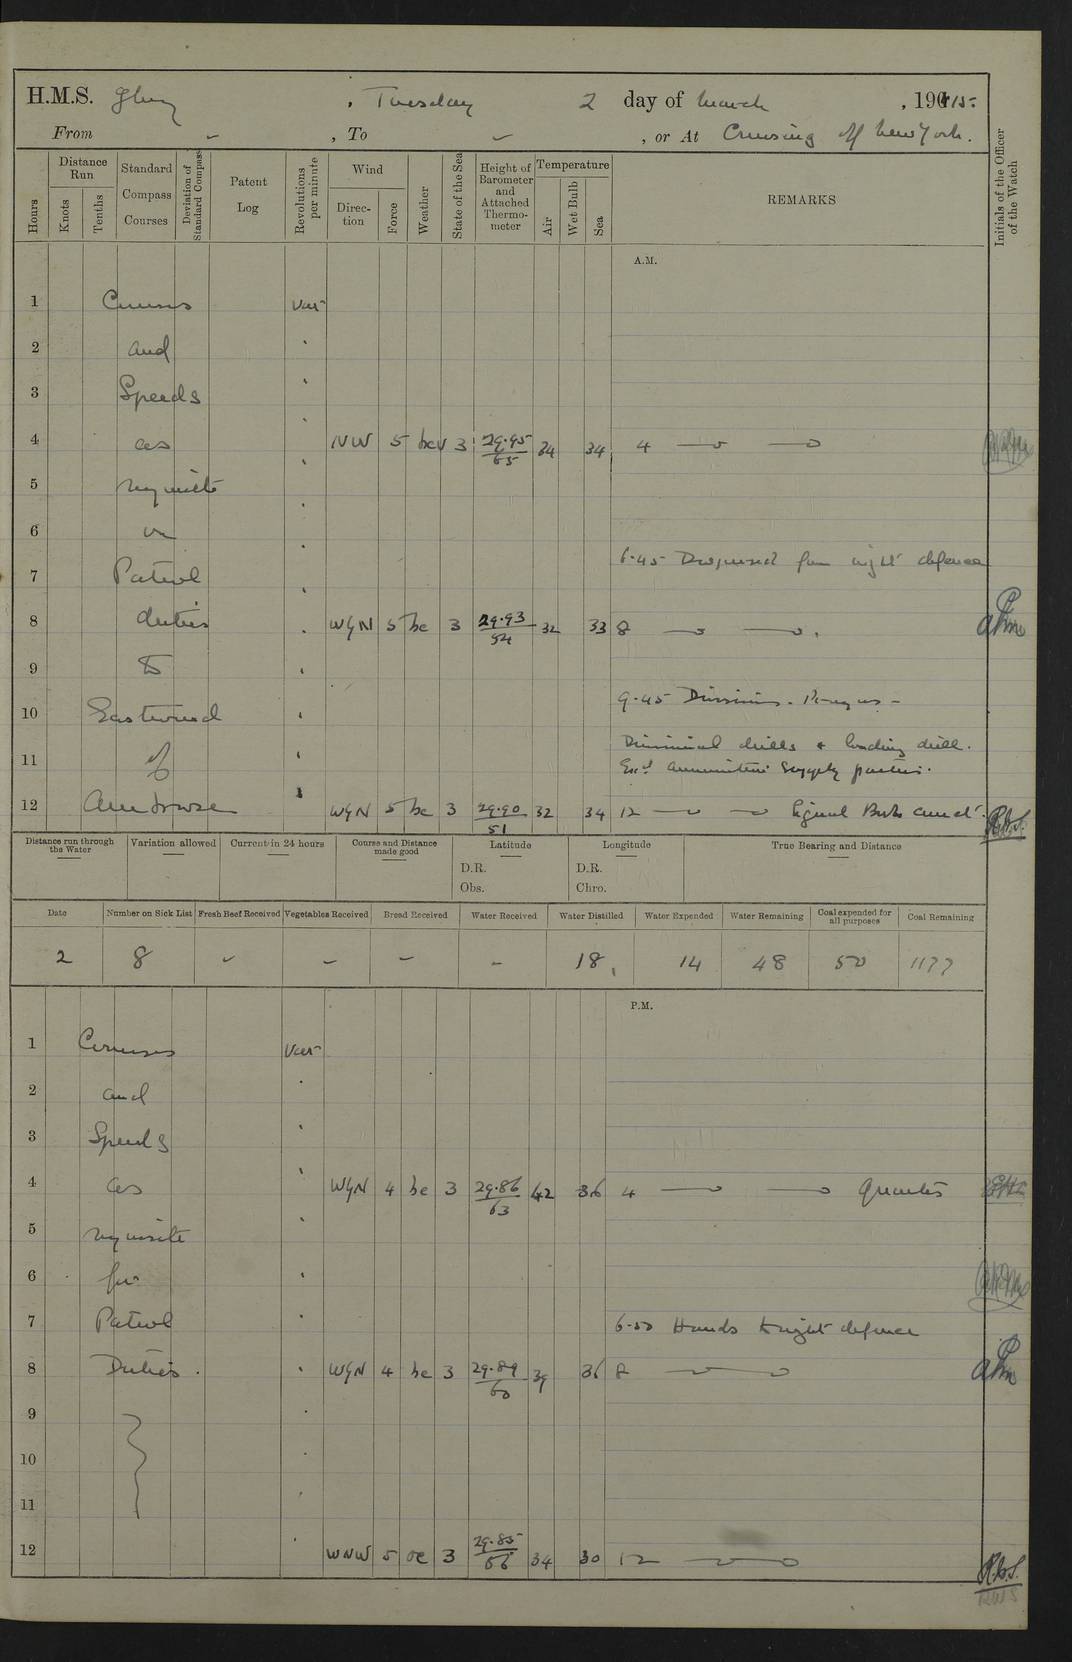 H.M.S. Glory , Tuesday 2 day of March , 1915.
From - , To - , or At Cruising off New York.
Hours
Distance Run
Knots
Tenths
Standard Compass Courses
Deviation of Standard Compass
Patent Log
Revolutions per minute
Wind
Direction
Force
Weather
State of the Sea
Height of Barometer and Attached Thermometer
Temperature
Air
Wet Bulb
Sea
REMARKS
Initials of the Officer of the Watch
A.M.
1 Courses var
2 and
3 Speeds
4 as NW 5 bcv 3 29.95/65 34 34 4
5 requisite
6 on
6.45 Dispersed from night defence
7 Patrol
8 duties WbyN 5 bc 3 29.93/54 32 33 8
9 to
9.45 Divisions. Prayers -
10 Eastward
Divisional drills & loading drill.
11 of
Exd. Ammunition supply parties.
12 Ambrose WbyN 5 bc 3 29.90/51 32 34 12 Signal Books
Distance run through the Water
Variation allowed
Current in 24 hours
Course and Distance made good
Latitude
D.R.
Obs.
Longitude
D.R.
Chro.
True Bearing and Distance
Date Number on Sick List Fresh Beef Received Vegetables Received Bread Received Water Received Water Distilled Water Expended Water Remaining Coal expended for all purposes Coal Remaining
2 8 - - - - 18 14 48 50 1177
P.M.
1 Courses var
2 and
3 Speeds
4 as WbyN 4 bc 3 29.86/63 42 36 4 Quarters
5 requisite
6 for
7 Patrol 6.50 Hands to night defence
8 Duties. WbyN 4 bc 3 29.89/60 39 36 8
9
10
11
12 WNW 5 oc 3 29.85/56 34 30 12